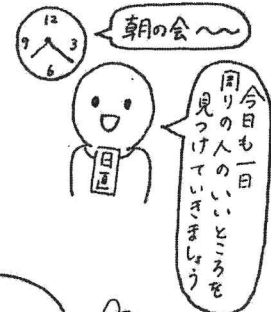 12
9 3
6
朝の会〜〜
今日も一日
周りの人のいいところを
見つけていきましょう
日直